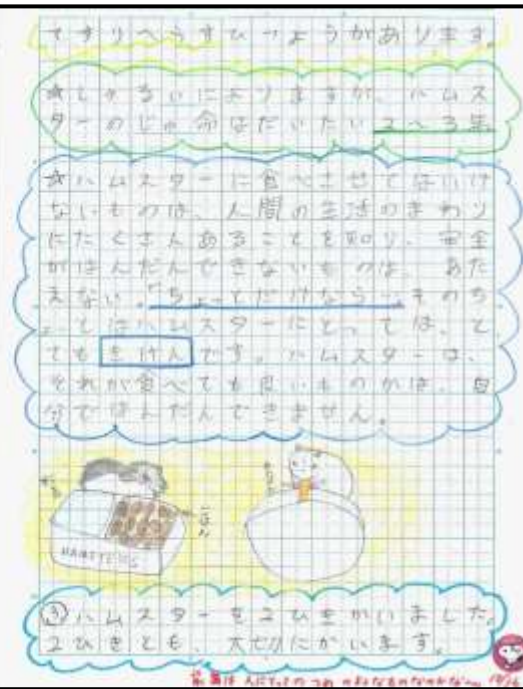 てすりへらすひつようがあります。
☆しゅるいによりますが、ハムス
ターのじゅ命はだいたい2〜3年
☆ハムスターに食べさせてはいけ
ないものは、人間の生活のまわり
にたくさんあることを知り、安全
がはんだんできないものは、あた
えない。「ちょっとだけなら…」そのち
ょっとはハムスターにとっては、と
てもきけんです。ハムスターは、
それが食べても良いものかは、自
分ではんだんできません。
ごはん
HAMSTERS
③ハムスターを2ひきかいました。
2ひきとも、大切にかいます。